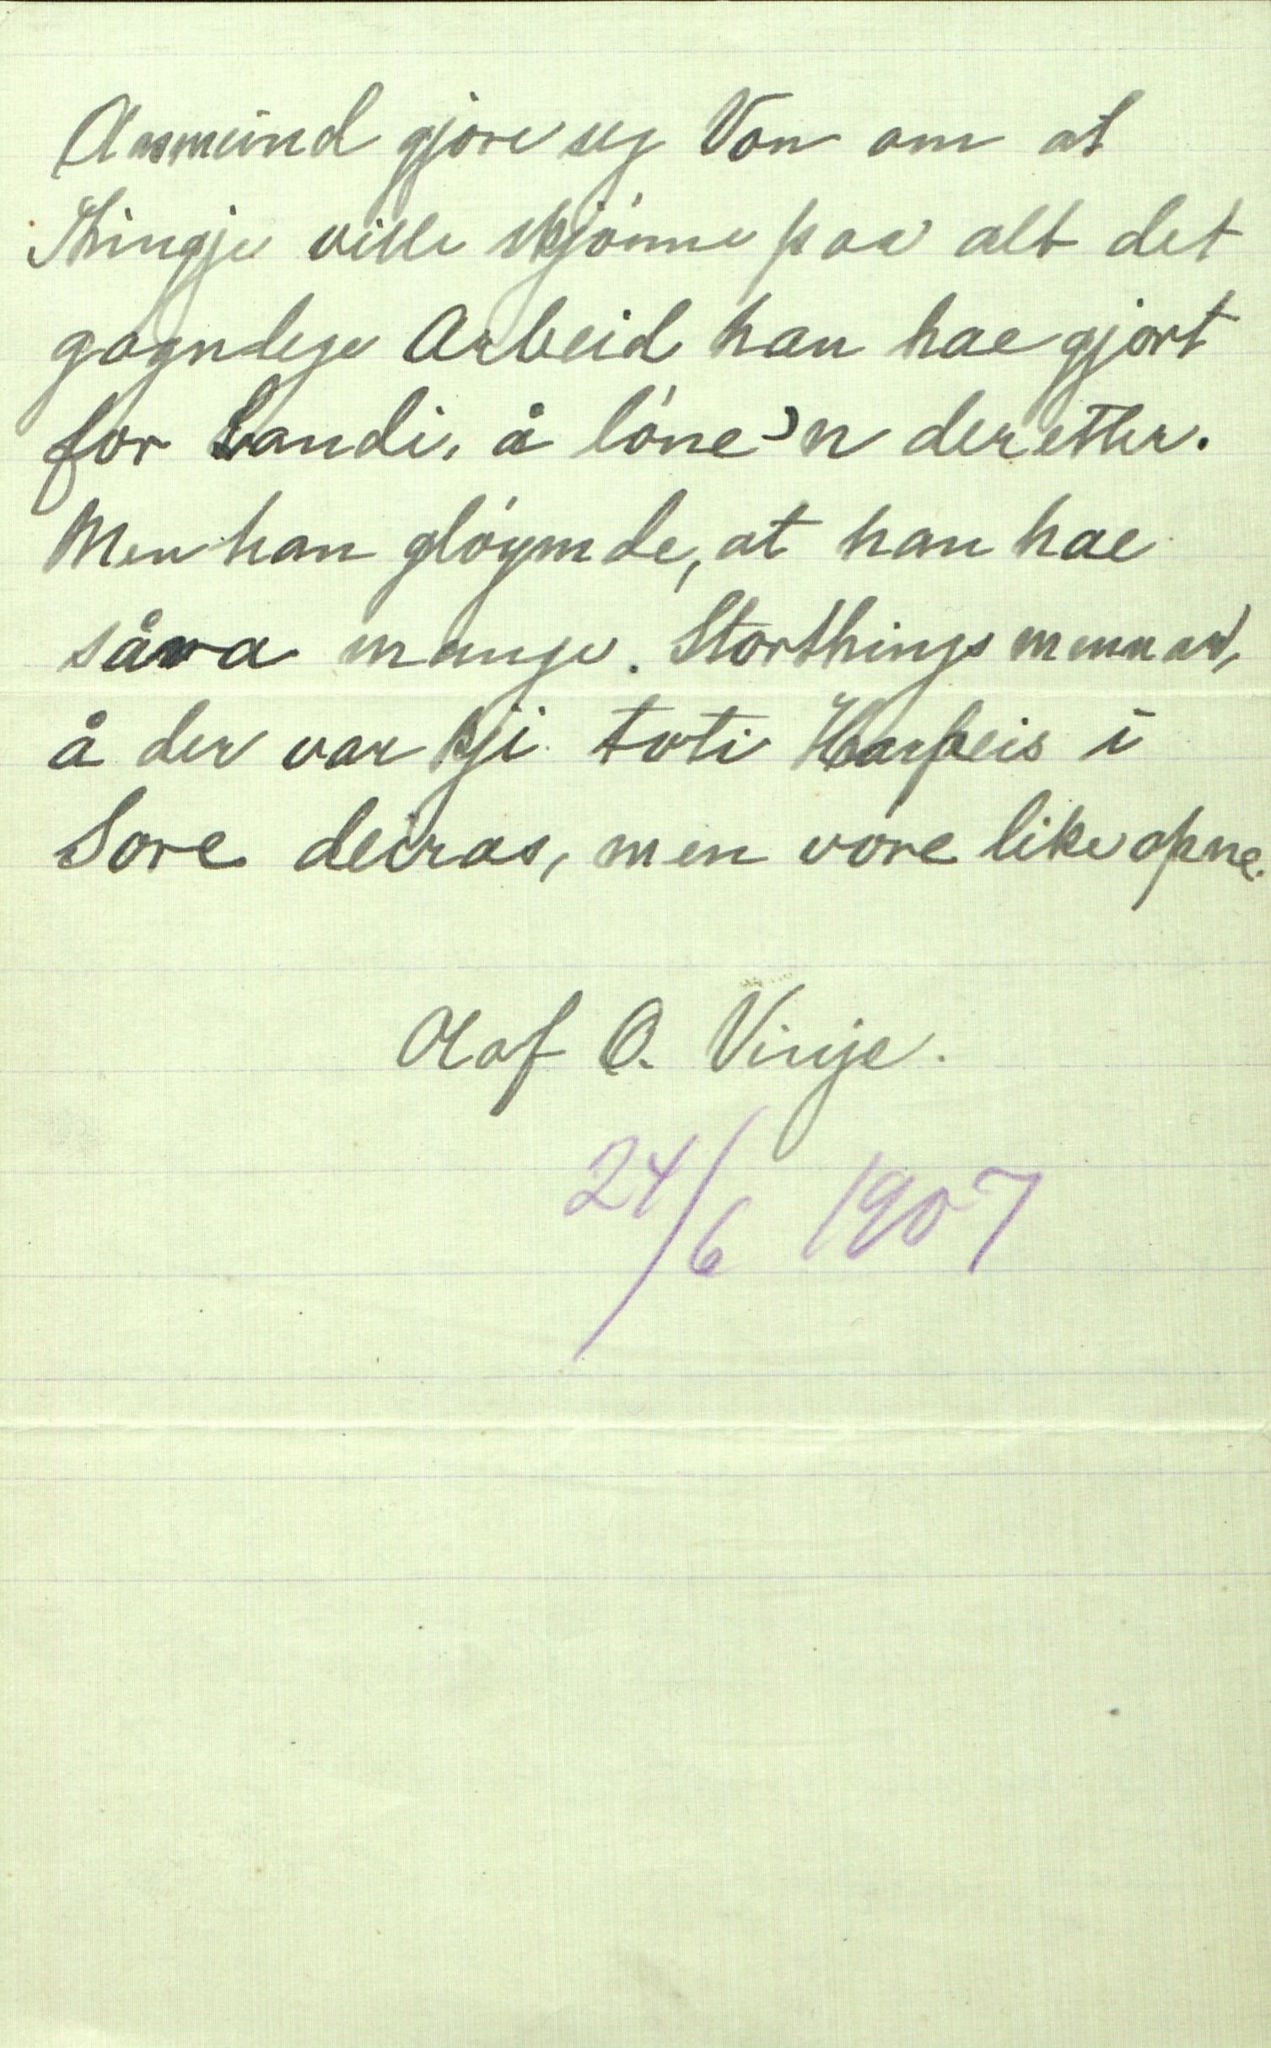 Aasmund gjore seg Von om at
Thingje ville skjónne paa alt det
gagnlege Arbeid han hae gjort
for Landi, å lóne'n deretter.
Men han glóymde, at han hae
såra mange Storthingsmenna,
å der var kji toti Harpeis i
Sore deiras, men vóre like opne.
Olaf O. Vinje.
24/6 1907